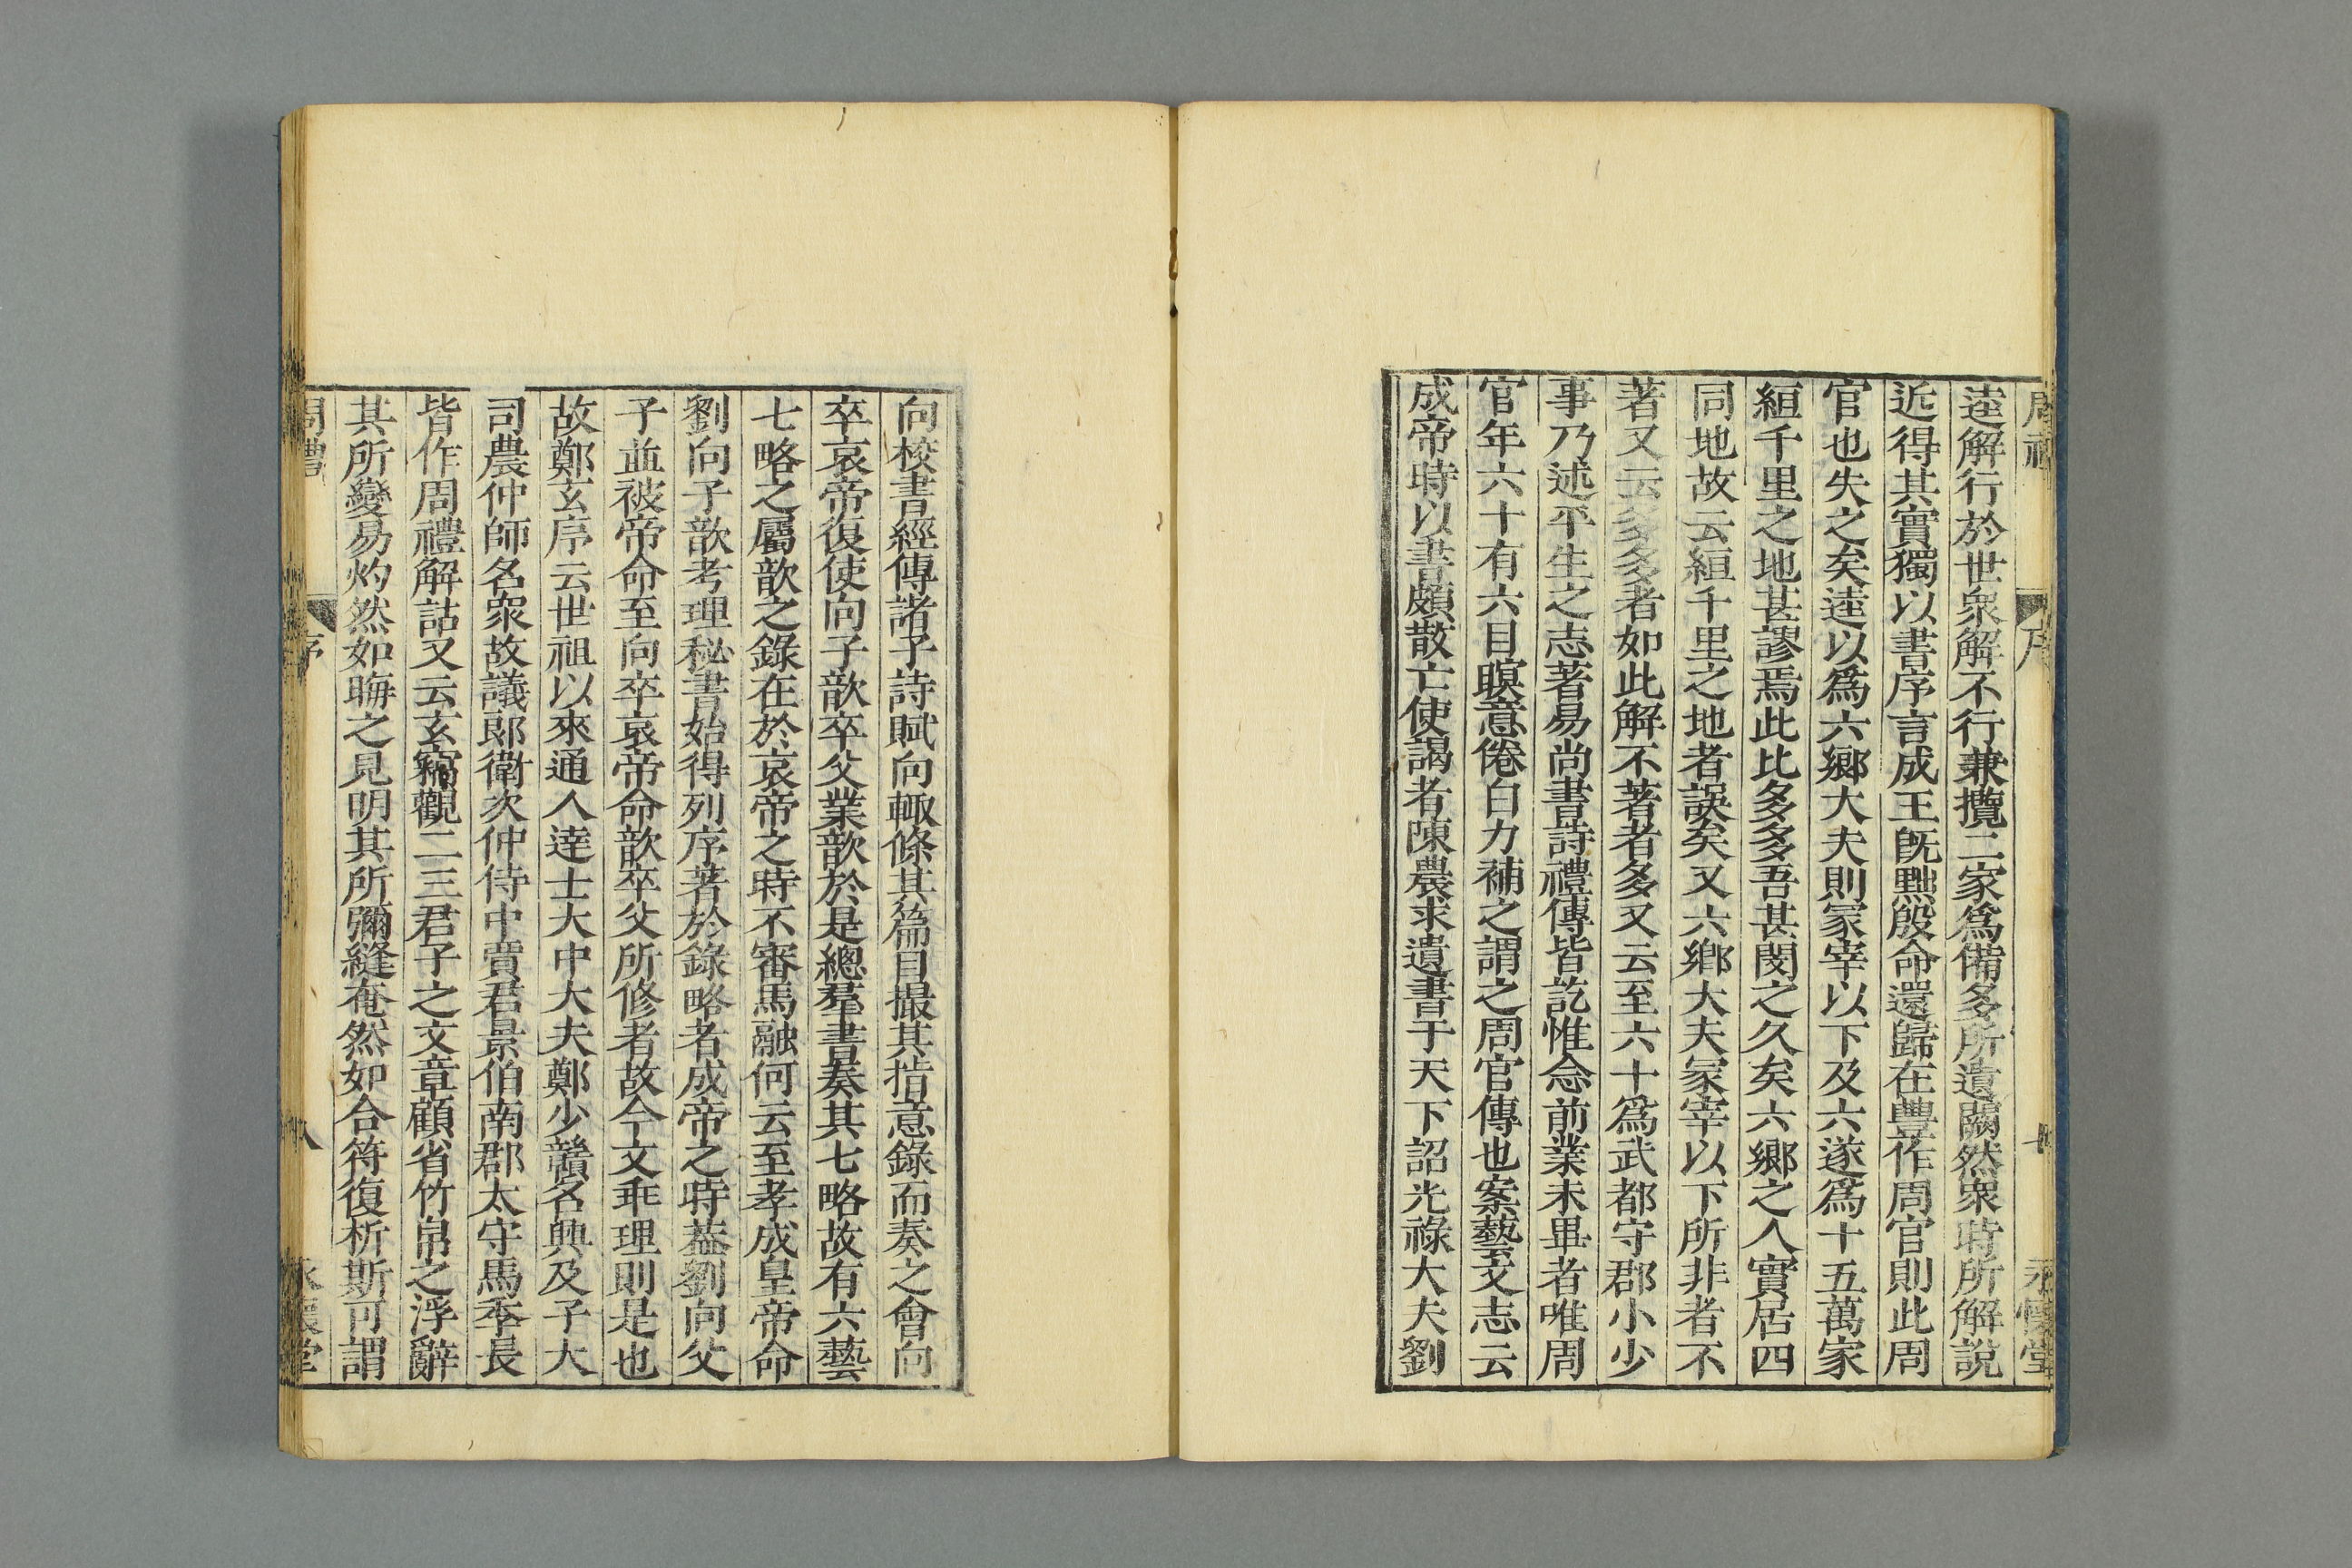 周禮 序 七 永懷堂
逵解行於世衆解不行兼攬二家爲備多所遺闕然衆時所解說
近得其實獨以書序言成王旣黜殷命還歸在豐作周官則此周
官也失之矣逵以爲六鄉大夫則冢宰以下及六遂爲十五萬家
絙千里之地甚謬焉此比多多吾甚閔之久矣六鄉之人實居四
同地故云絙千里之地者誤矣又六鄉大夫冢宰以下所非者不
著又云多多者如此解不著者多又云至六十爲武都守郡小少
事乃述平生之志著易尚書詩禮傳皆訖惟念前業未畢者唯周
官年六十有六目瞑意倦自力補之謂之周官傳也案藝文志云
成帝時以書頗散亡使謁者陳農求遺書于天下詔光祿大夫劉
向校書經傳諸子詩賦向輙條其篇目撮其指意錄而奏之會向
卒哀帝復使向子歆卒父業歆於是總羣書奏其七略故有六藝
七略之屬歆之錄在於哀帝之時不審馬融何云至孝成皇帝命
劉向子歆考理秘書始得列序著於錄略者成帝之時葢劉向父
子並被帝命至向卒哀帝命歆卒父所修者故今文乖理則是也
故鄭玄序云世祖以來通人達士大中大夫鄭少贛名興及子大
司農仲師名衆故議郎衛次仲侍中賈君景伯南郡太守馬季長
皆作周禮解詁又云玄竊觀二三君子之文章顧省竹帛之浮辭
其所變易灼然如晦之見明其所彌縫奄然如合符復析斯可謂
周禮 序 八 永懷堂